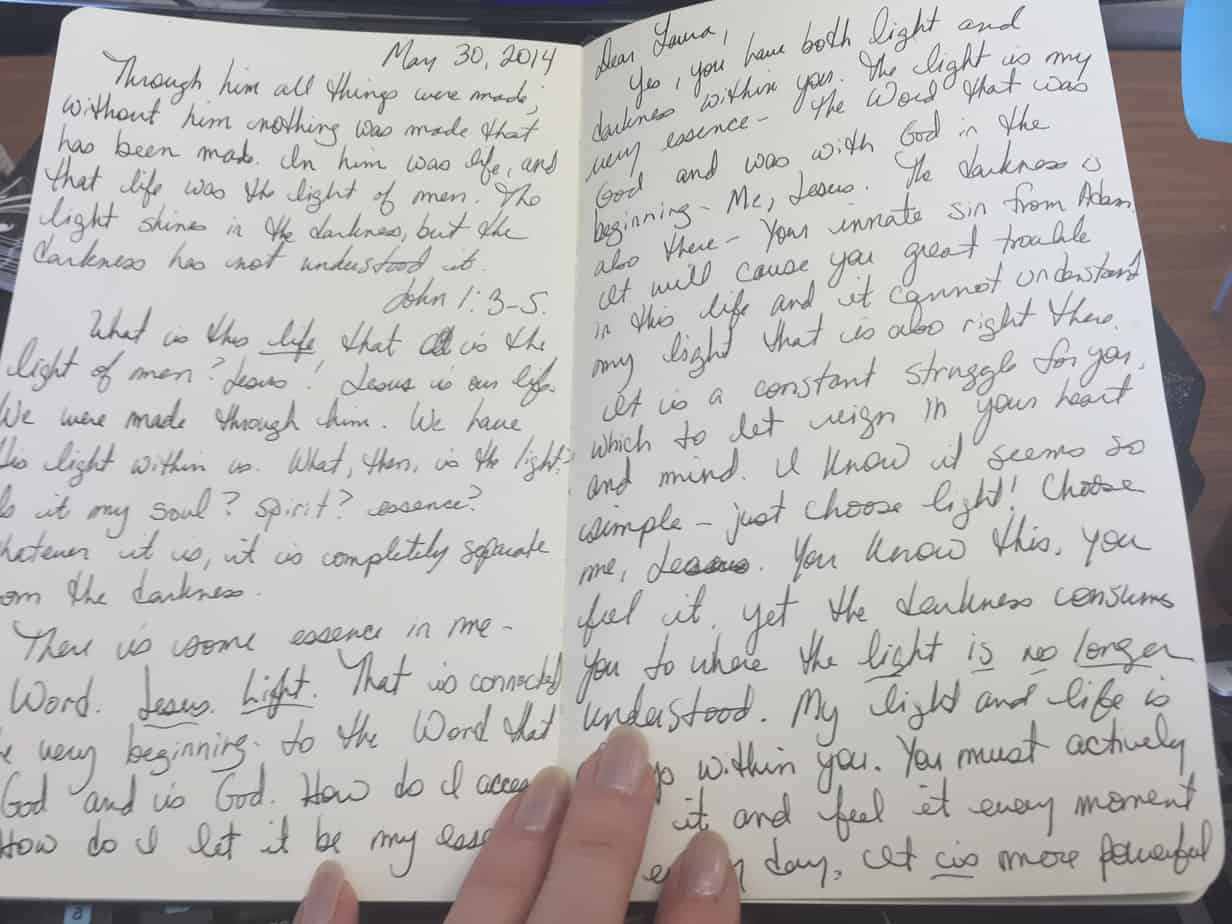 May 30, 2014
Through him all things were made;
without him nothing was made that
has been made. In him was life, and
that life was the light of men. The
light shines in the darkness, but the
darkness has not understood it.
John 1:3-5.
What is this life that is the
light of men? Jesus! Jesus is our life.
We were made through him. We have
light within us. What, then, is the light?
it my soul? spirit? essence?
it is, it is completely separate
the darkness.
There is some essence in me -
Word. Jesus. Light. That is connected
very beginning - to the Word that
God and is God. How do I
How do I let it be my
Dear Laura,
Yes, you have both light and
darkness within you. The light is my
very essence - The Word that was
God and was with God in the
beginning - Me, Jesus. The darkness is
also there - Your innate sin from Adam.
It will cause you great trouble
in this life and it cannot understand
my light that is also right there.
It is a constant struggle for you,
which to let reign in your heart
and mind. I know it seems so
simple - just choose light! Choose
me, Jesus. You know this, you
feel it, yet the darkness consumes
you to where the light is no longer
understood. My light and life is
within you. You must actively
it and feel it every moment
day. It is more powerful
a